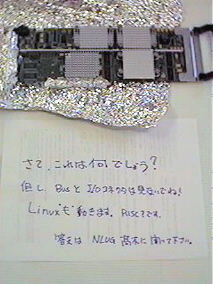 さて、これは何でしょう?
但し、Busと I/Oコネクタは見ないでね!
Linux も 動きます。RISCです。
答えは NLUG 高木に聞いて下さい。